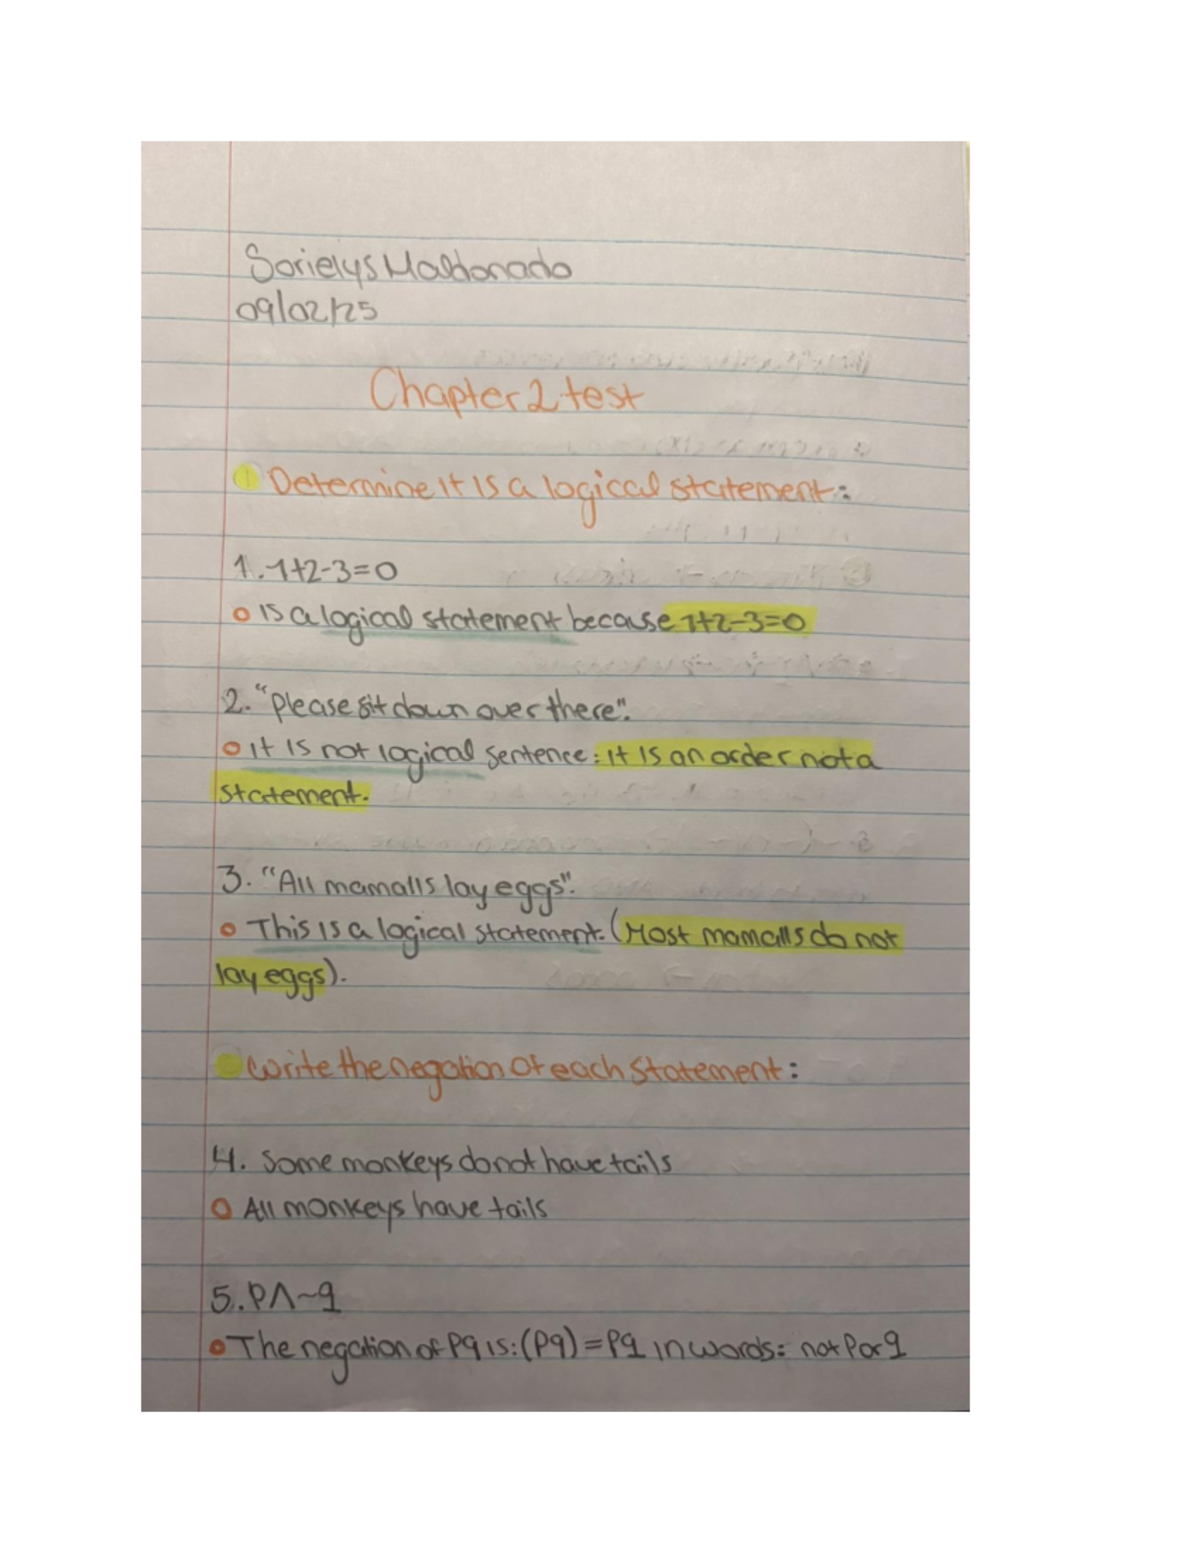 Sorielys Maldonado
09/02/25
Chapter 2 test
Determine it is a logical statement:
1. 1+2-3=0
is a logical statement because 1+2-3=0
2. "please sit down over there".
it is not logical sentence: it is an order not a
statement.
3. "All mamalls lay eggs".
This is a logical statement. (Most mamalls do not
lay eggs).
Write the negation of each statement:
4. Some monkeys do not have tails
All monkeys have tails
5. P∧~q
The negation of Pq is: (Pq) = Pq in words: not P or q